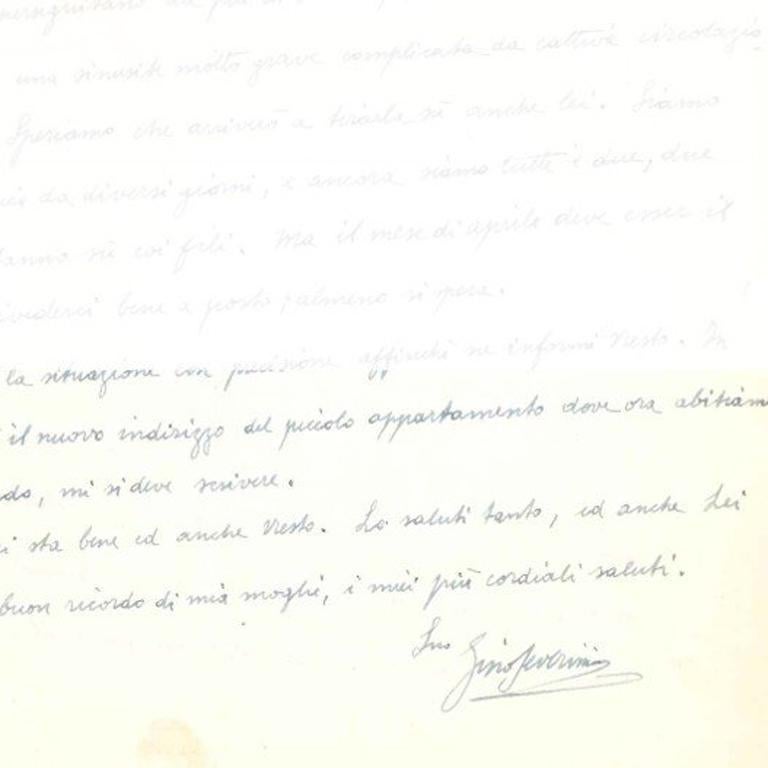 una sinusite molto grave complicata da cattiva circolazio-
Speriamo che arriverò a tirarla sù anche lei. Siamo
da diversi giorni, e ancora siamo tutti i due, due
sù coi fili. Ma il mese di aprile deve esser il
bene a posto, almeno si spera.
la situazione con precisione affinché ne informi Vesto. In
il nuovo indirizzo del piccolo appartamento dove ora abitiam
mi si deve scrivere.
sta bene ed anche Vesto. Lo saluti tanto, ed anche Lei
buon ricordo di mia moglie, i miei più cordiali saluti.
Suo Gino Severini